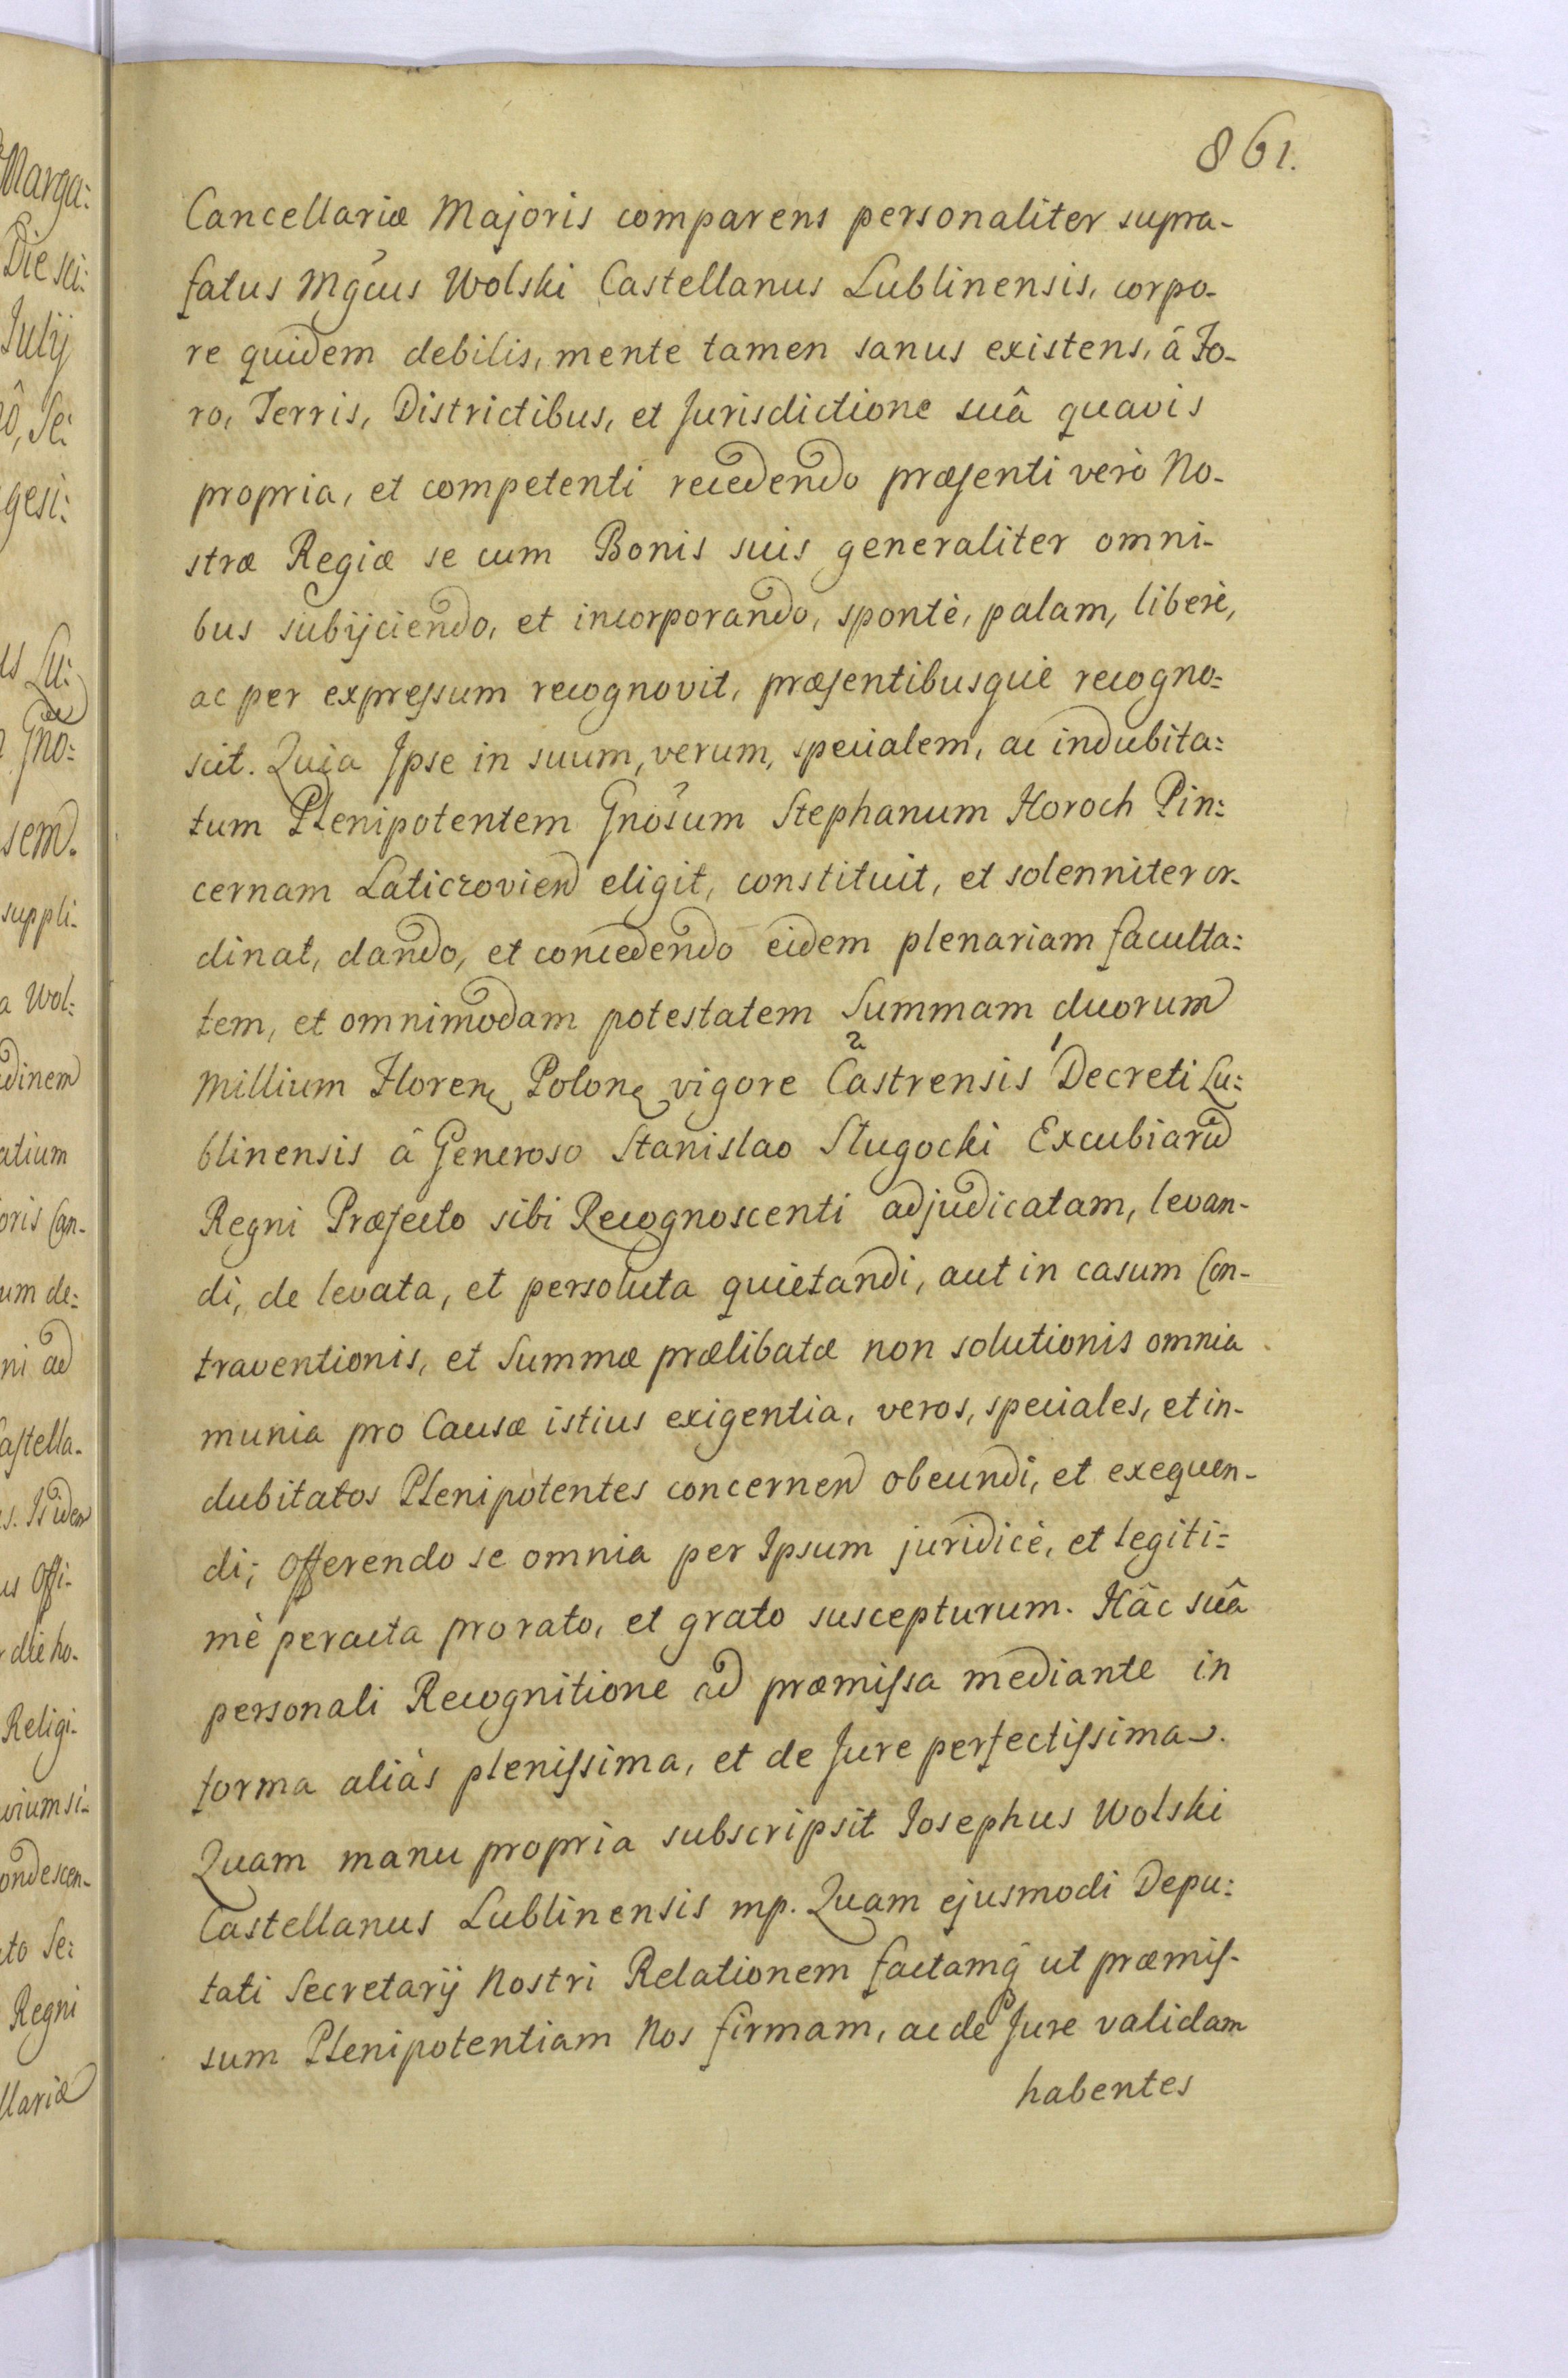 861.
Marga:
Die sci:
Julij
gesi:
sem.
suppli:
a Wol:
dinem
atium
oris Can-
um de:
ni ad
astella-
us Offi-
die ho-
Religi-
ondescen-
to Se:
Regni
llariæ
Cancellariæ Majoris comparens personaliter supra-
fatus Mgcus Wolski Castellanus Lublinensis, corpo-
re quidem debilis, mente tamen sanus existens, â Fo-
ro, Terris, Districtibus, et Jurisdictione suâ quavis
propria, et competenti recedendo præsenti verò No-
stræ Regiæ se cum Bonis suis generaliter omni-
bus subijciendo, et incorporando, spontè, palam, liberè,
ac per expressum recognovit, præsentibusquè recogno:
scit. Quia Ipse in suum, verum, specialem, ac indubita:
tum Plenipotentem Gnosum Stephanum Horoch Pin:
cernam Laticzovien eligit, constituit, et solenniter or-
dinat, dando, et concedendo eidem plenariam faculta:
tem, et omnimodam potestatem Summam duorum
2 1
Millium Floren Polon vigore Castrensis Decreti Lu:
blinensis â Generoso Stanislao Sługocki Excubiarū
Regni Præfecto sibi Recognoscenti adjudicatam, levan-
di, de levata, et persoluta quietandi, aut in casum Con-
traventionis, et Summæ prælibatæ non solutionis omnia
munia pro Causæ istius exigentia, veros, speciales, et in-
dubitatos Plenipotentes concernen obeundi, et exequen-
di; offerendo se omnia per Ipsum juridicè, et legiti=
mè peracta pro rato, et grato suscepturum. Hâc suâ
personali Recognitione ad præmissa mediante in
forma aliàs plenissima, et de Jure perfectissima.
Quam manu propria subscripsit Josephus Wolski
Castellanus Lublinensis mp. Quam ejusmodi Depu:
tati Secretarij Nostri Relationem factamq ut præmis-
sum Plenipotentiam Nos firmam, ac de Jure validam
habentes